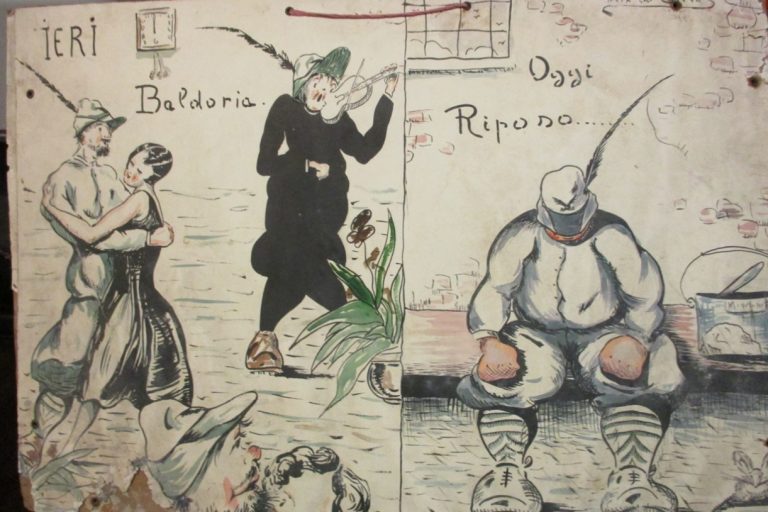 IERI
Baldoria.
Oggi
Riposo........